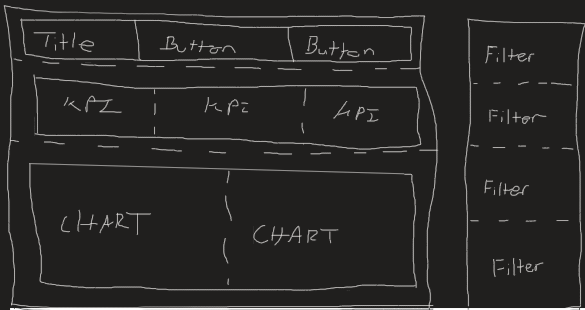 Title Button Button
KPI KPI KPI
CHART CHART
Filter
Filter
Filter
Filter